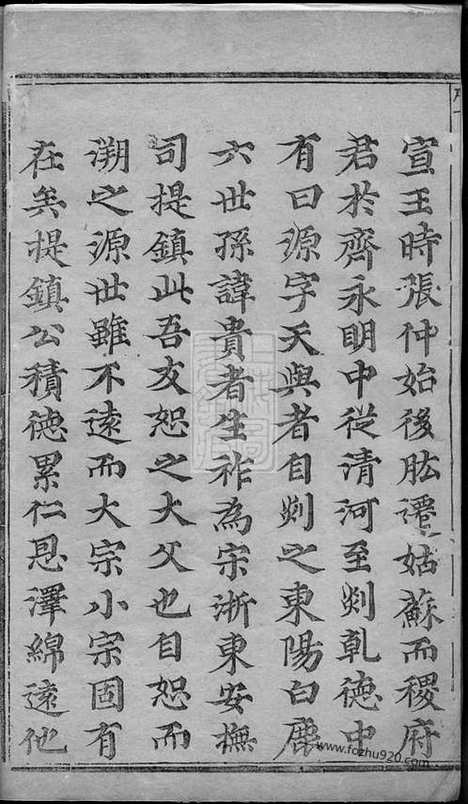 宣王時張仲始後肱遷姑蘇而稷府
君於齊永明中從清河至剡乹德中
有曰源字天與者自剡之東陽白鹿
六世孫諱貴者生祚為宗浙東安撫
司提鎮此吾友恕之大父也自恕而
溯之源世雖不遠而大宗小宗固有
在矣提鎮公積德累仁恩澤綿遠他
www.fozhu920.com